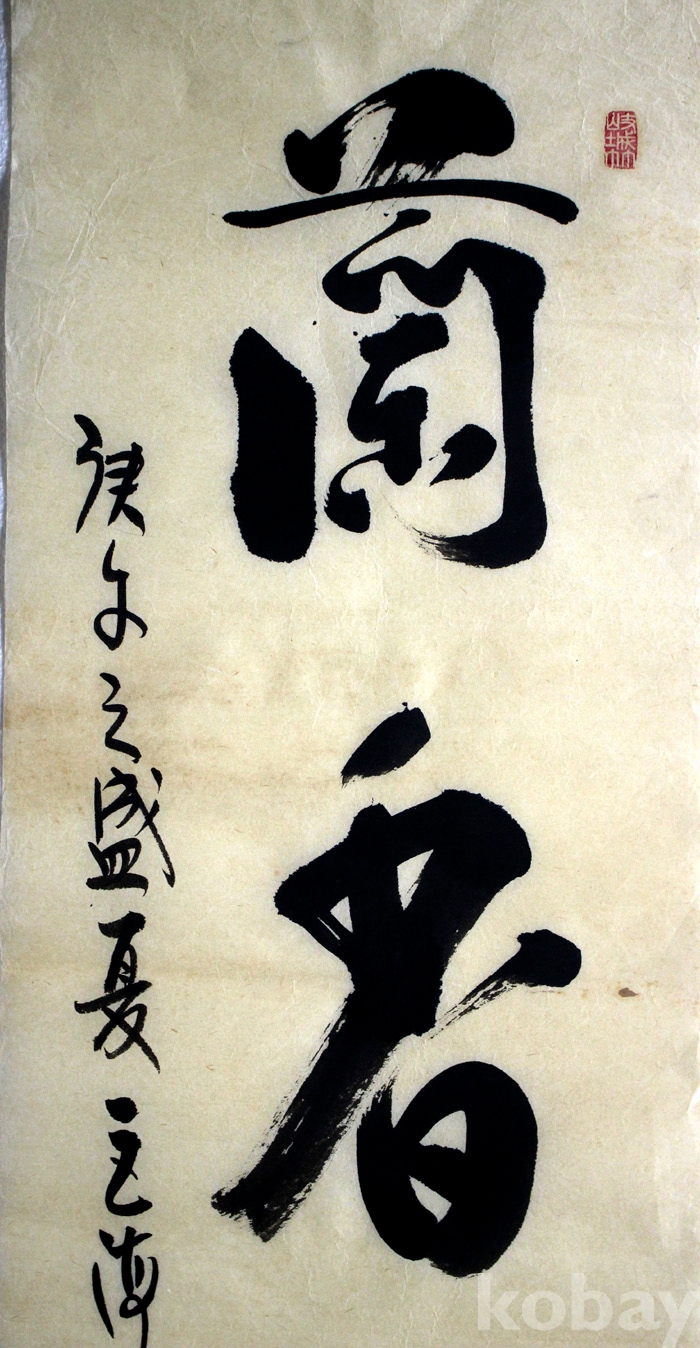 蘭香
庚午之盛夏
kobay